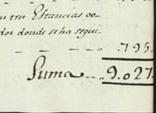 tres Estancias co-
dos donde se ha segui-
.195.
Suma... 9.027